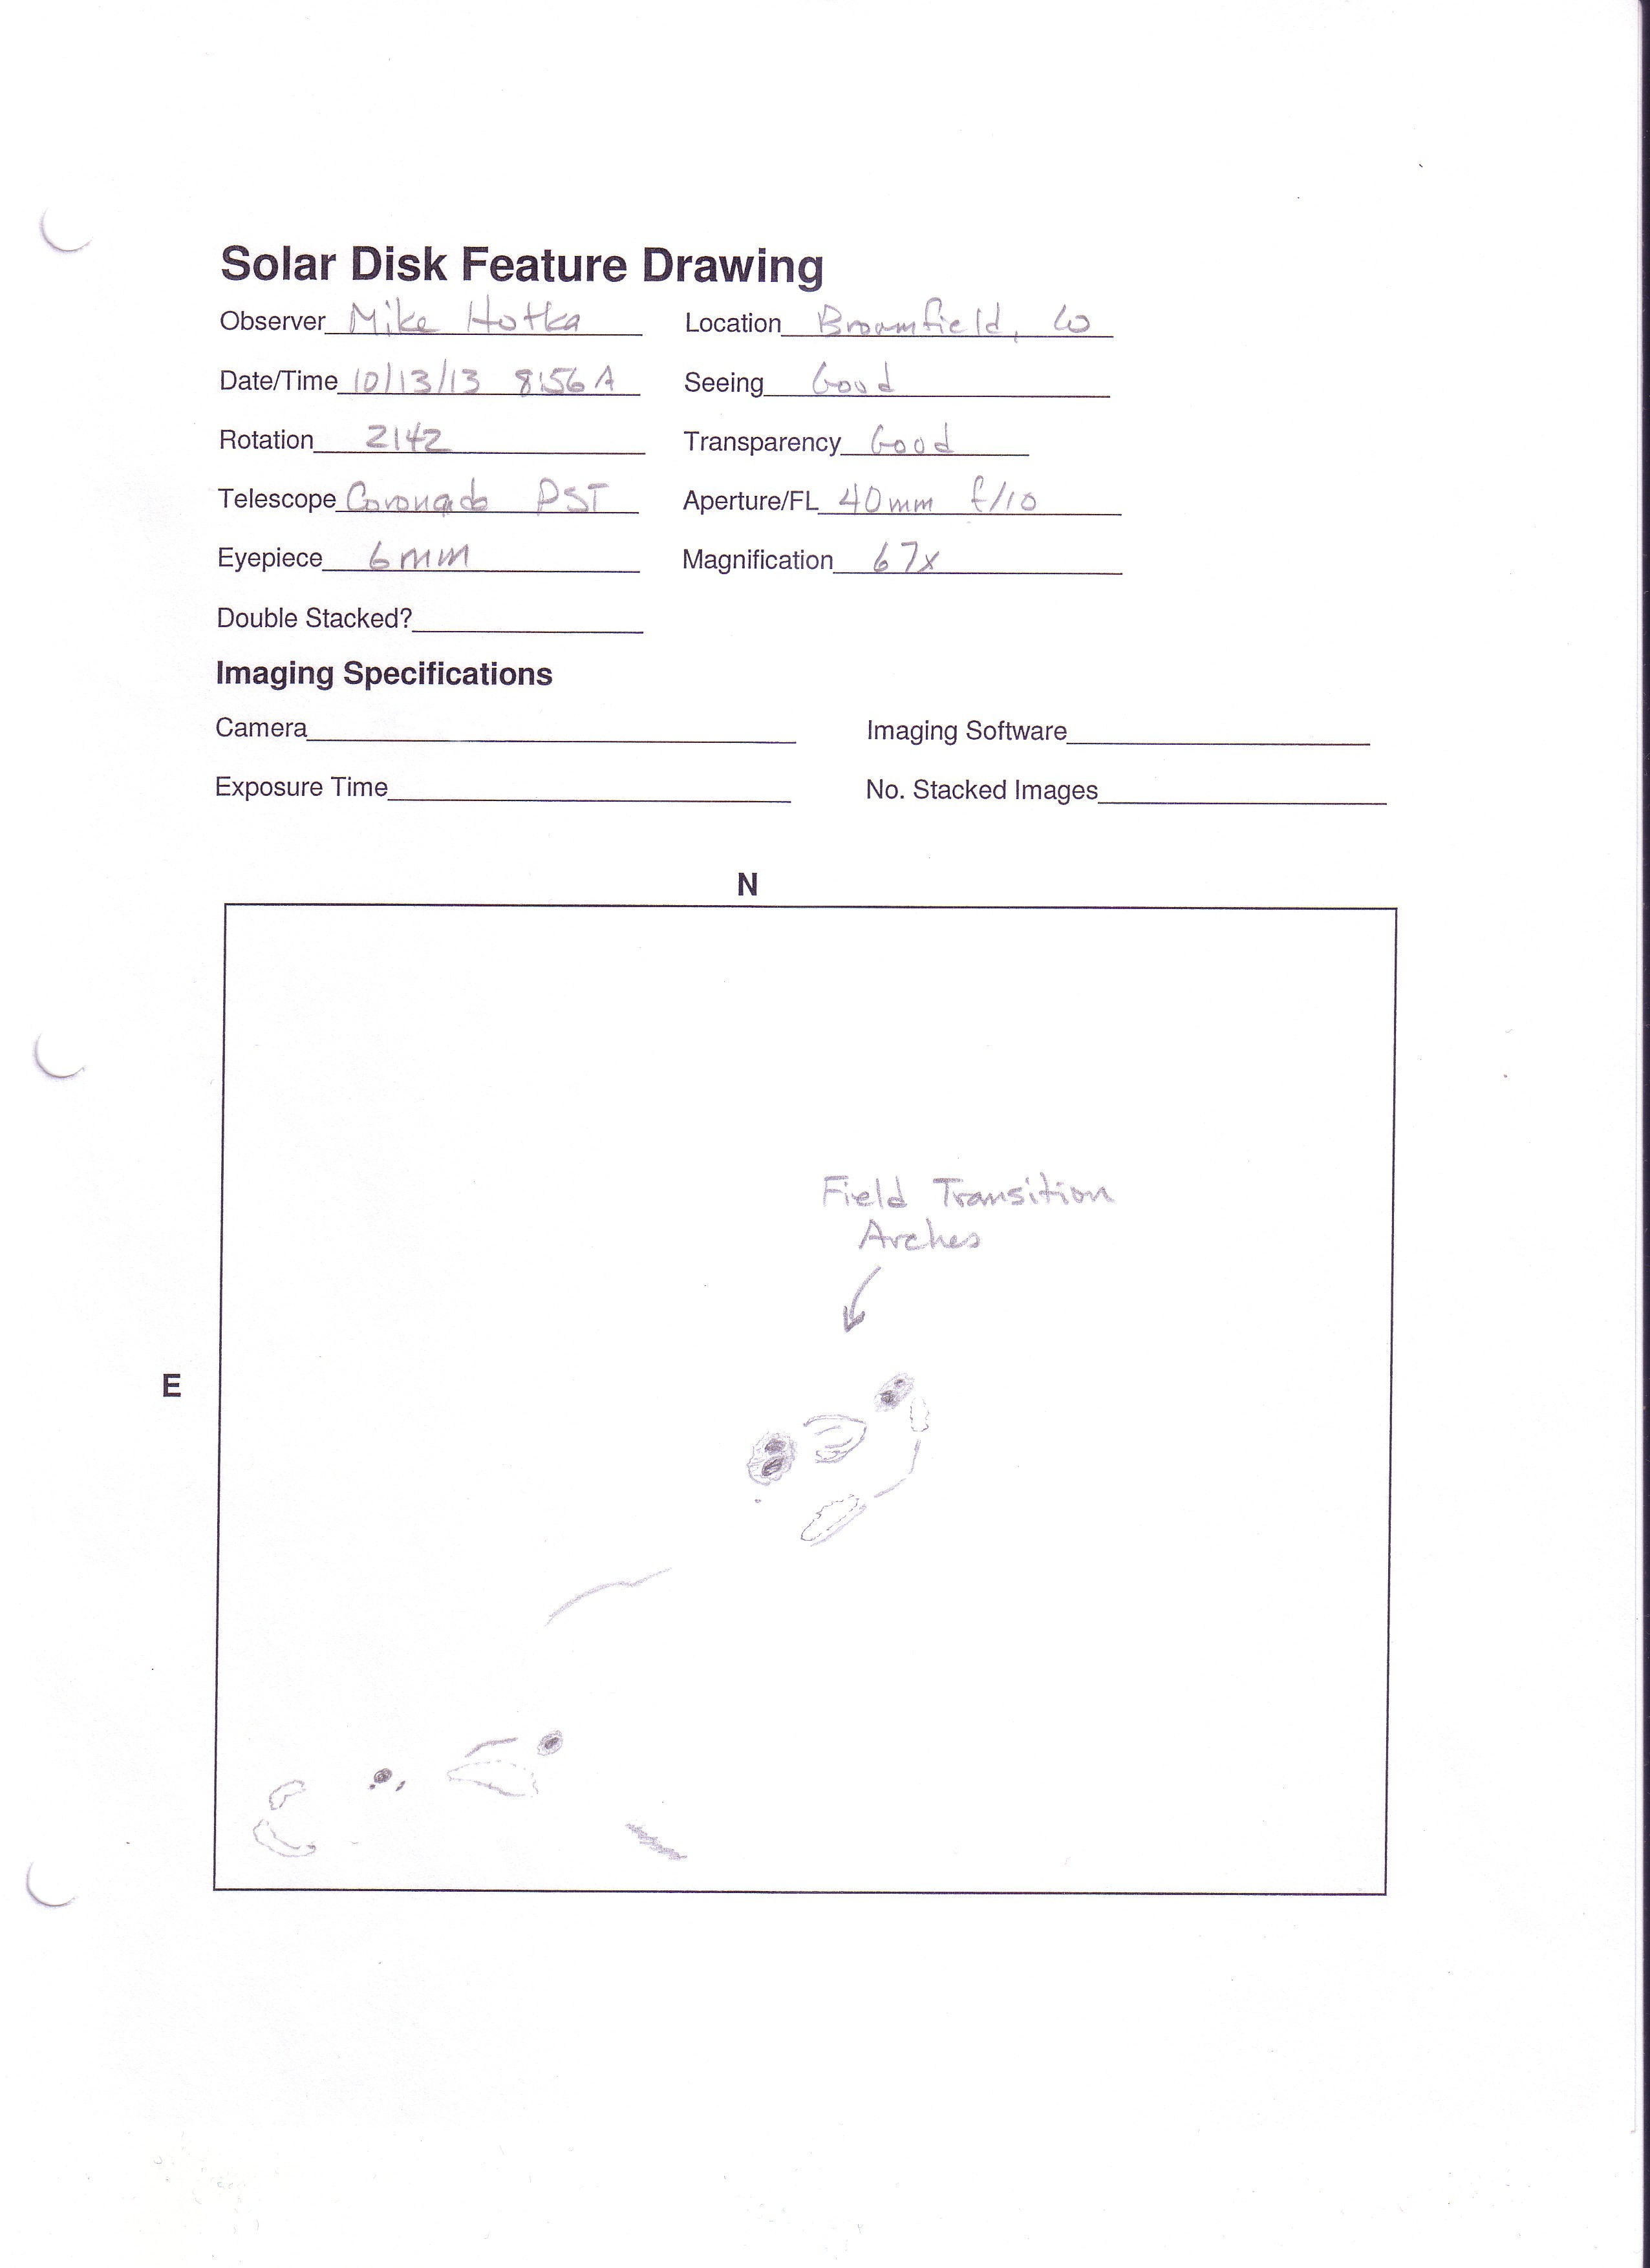 Solar Disk Feature Drawing
Observer Mike Hotka Location Broomfield, CO
Date/Time 10/13/13 8:56 A Seeing Good
Rotation 2142 Transparency Good
Telescope Coronado PST Aperture/FL 40mm f/10
Eyepiece 6mm Magnification 67x
Double Stacked?
Imaging Specifications
Camera Imaging Software
Exposure Time No. Stacked Images
N
Field Transition
Arches
E